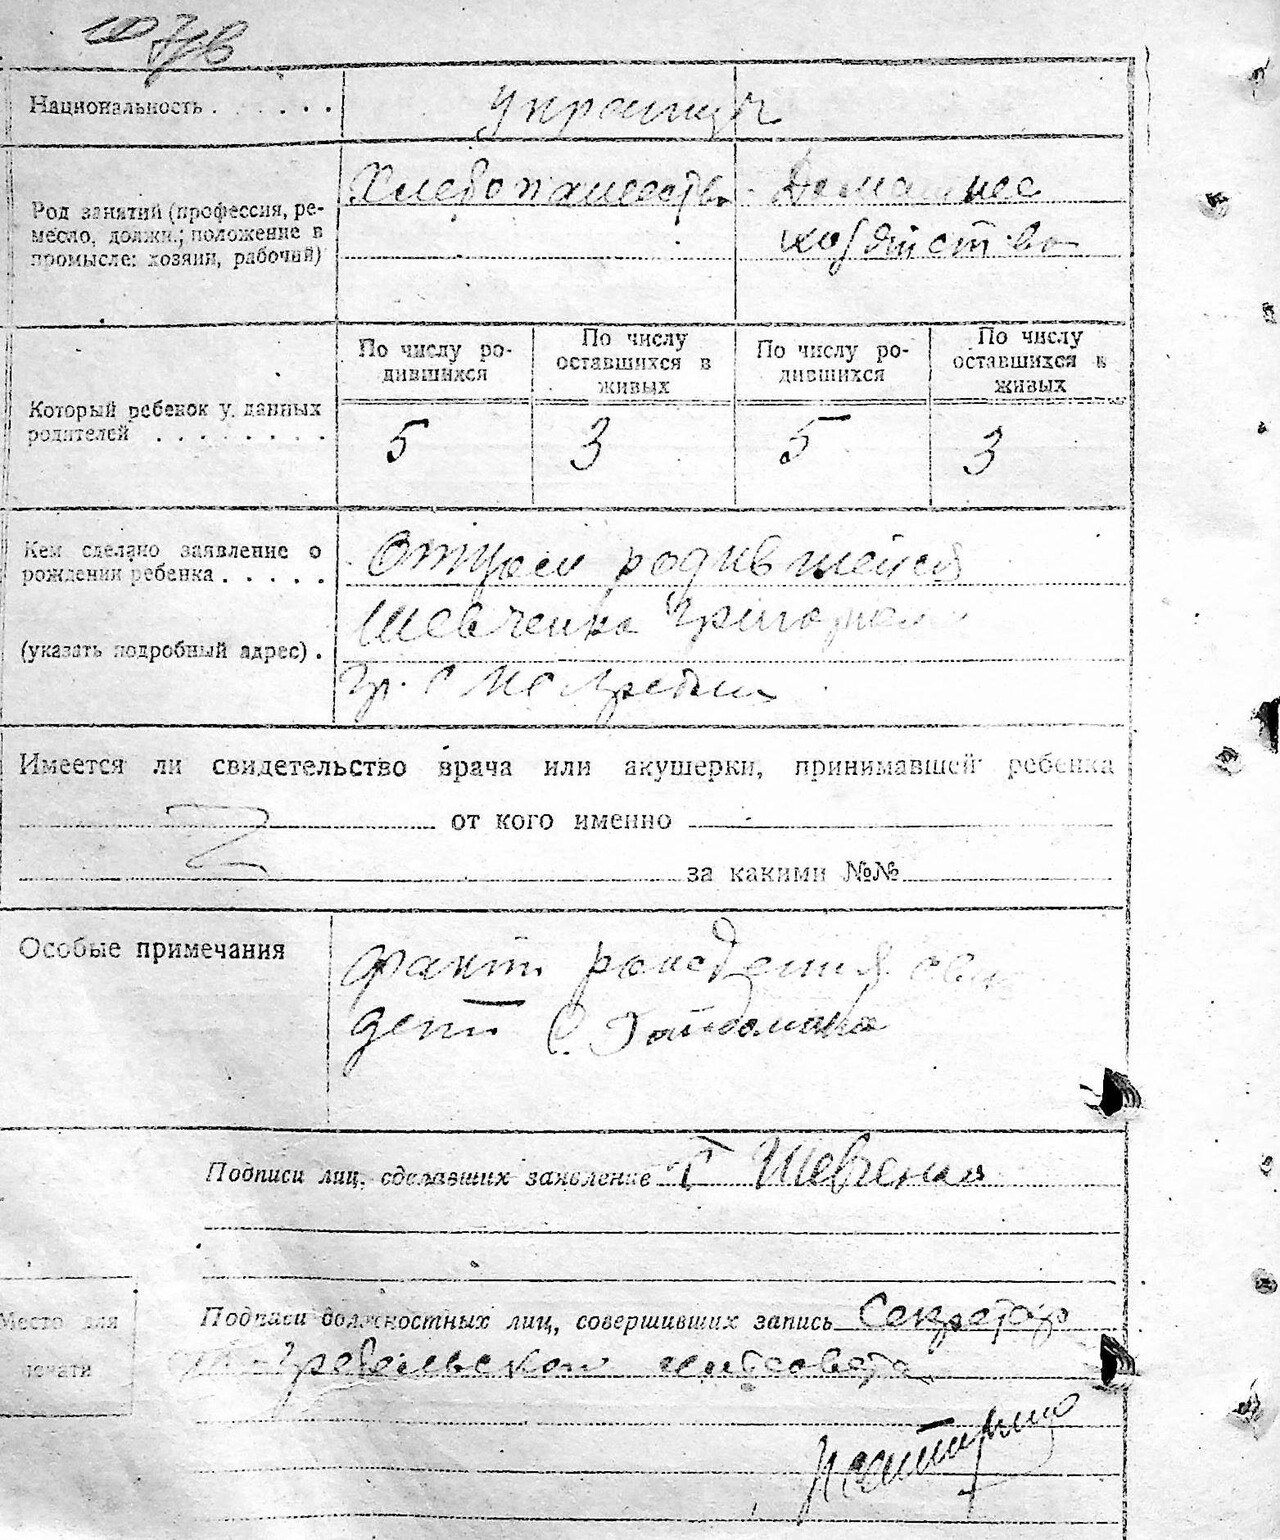 Национальность . . . . . . украинцы
Хлебопашество Домашнее
Род занятий (профессия, ре-
месло, должн.; положение в хозяйство
промысле: хозяин, рабочий)
По числу ро- По числу По числу ро- По числу
дившихся оставшихся в дившихся оставшихся в
живых живых
Который ребенок у данных
родителей . . . . . . . . 5 3 5 3
Кем сделано заявление о Отцом родившейся
рождении ребенка . . . . .
Шевченко Григорием
(указать подробный адрес) .
гр. с
Имеется ли свидетельство врача или акушерки, принимавшей ребенка
от кого именно
за какими №№
Особые примечания факт рождения сви
дет С.
Подписи лиц, сделавших заявление Г Шевченко
Подписи должностных лиц, совершивших запись Секретар
Место для
печати